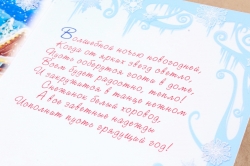 Волшебной ночью новогодней,
Когда от ярких звёзд светло,
Пусть соберутся гости в доме,
Всем будет радостно, тепло!
И закружится в танце нежном
Снежинок белых хоровод,
А все заветные надежды
Исполнит пусть грядущий год!